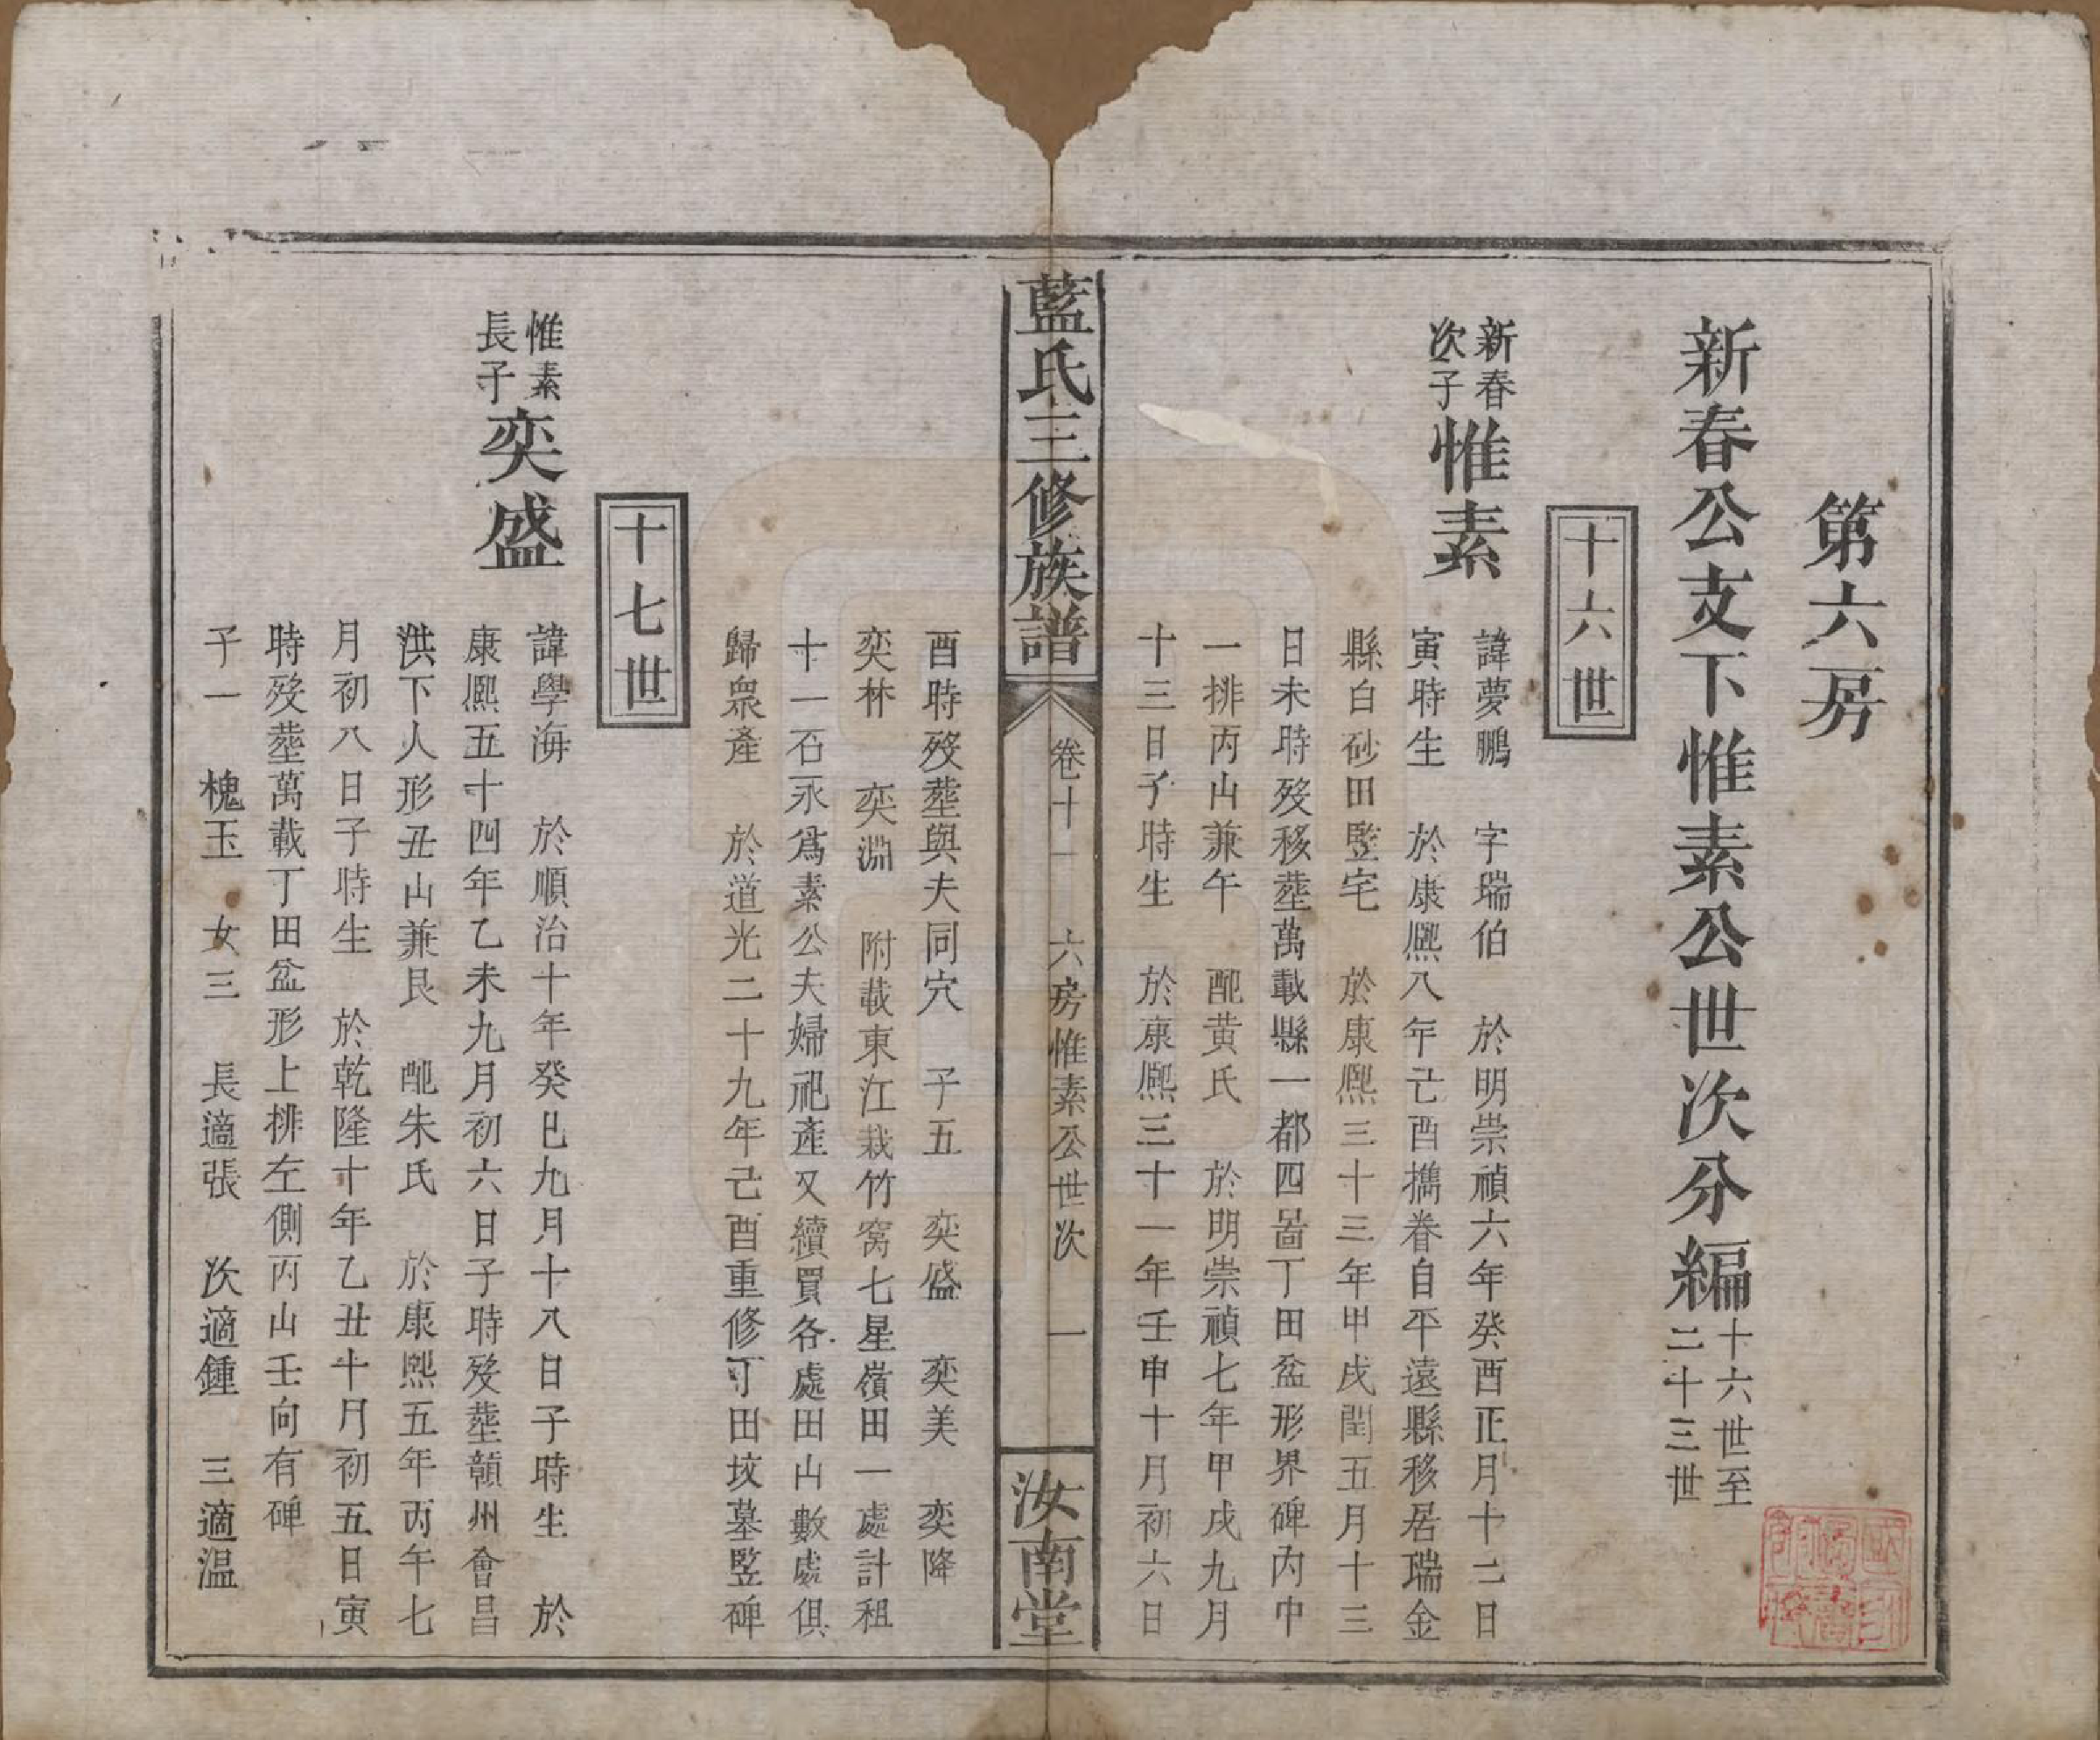 第六房
新春公支下惟素公世次分編十六世至二十三世
十六世
新春次子惟素
諱夢鵬　字瑞伯　於明崇禎六年癸酉正月十二日
寅時生　於康熙八年己酉攜眷自平遠縣移居瑞金
縣白砂田監宅　於康熙三十三年甲戌閏五月十三
日未時歿移塟萬載縣一都四啚丁田盆形界碑內中
一排丙山兼午　配黄氏　於明崇禎七年甲戌九月
十三日子時生　於康熙三十一年壬申十月初六日
藍氏三修族譜
卷十一　六房惟素公世次　一
汝南堂
酉時歿塟與夫同穴　子五　奕盛　奕美　奕降
奕林　奕淵　附載東江栽竹窩七星嶺田一處計租
十一石永爲素公夫婦祀產又續買各處田山數處俱
歸衆產　於道光二十九年己酉重修丁田坟墓竪碑
十七世
惟素長子奕盛
諱學海　於順治十年癸巳九月十八日子時生　於
康熙五十四年乙未九月初六日子時歿塟贑州會昌
洪下人形丑山兼艮　配朱氏　於康熙五年丙午七
月初八日子時生　於乾隆十年乙丑十月初五日寅
時歿塟萬載丁田盆形上排左側丙山壬向有碑
子一　槐玉　女三　長適張　次適鍾　三適温